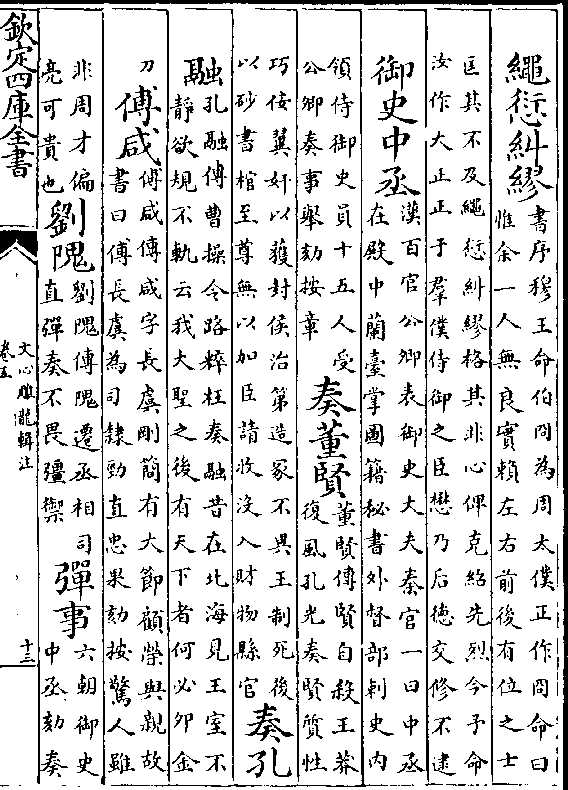 繩愆糾繆
書序穆王命伯冏為周太僕正作冏命曰
惟余一人無良實賴左右前後有位之士
匡其不及繩愆糾繆格其非心俾克紹先烈今予命
汝作大正正于羣僕侍御之臣懋乃后徳交修不逮
御史中丞
漢百官公卿表御史大夫秦官一曰中丞
在殿中蘭臺掌圖籍秘書外督部刺史内
領侍御史員十五人受
公卿奏事舉劾按章
奏董賢
董賢傳賢自殺王莽
復風孔光奏賢質性
巧佞翼奸以獲封侯治第造冢不異王制死後
以砂書棺至尊無以加臣請收沒入財物縣官
奏孔
融
孔融傳曹操令路粹枉奏融昔在北海見王室不
靜欲規不軌云我大聖之後有天下者何必夘金
刀
傅咸
傅咸傳咸字長虞剛簡有大節顧榮與親故
書曰傅長虞為司隸勁直忠果劾按驚人雖
非周才偏
亮可貴也
劉隗
劉隗傳隗遷丞相司
直彈奏不畏彊禦
彈事
六朝御史
中丞劾奏
欽定四庫全書
文心雕龍輯注
卷五
十三